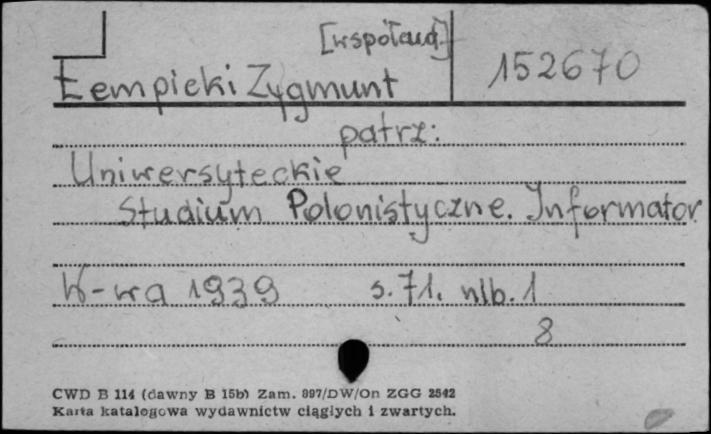 [współaut.]
152670
Łempicki Zygmunt
patrz:
Uniwersyteckie
Studium Polonistyczne. Informator
W-wa 1939 s. 71. nlb. 1
8
CWD B 114 (dawny B 15b) Zam. 997/DW/On ZGG 2542
Karta katalogowa wydawnictw ciągłych i zwartych.